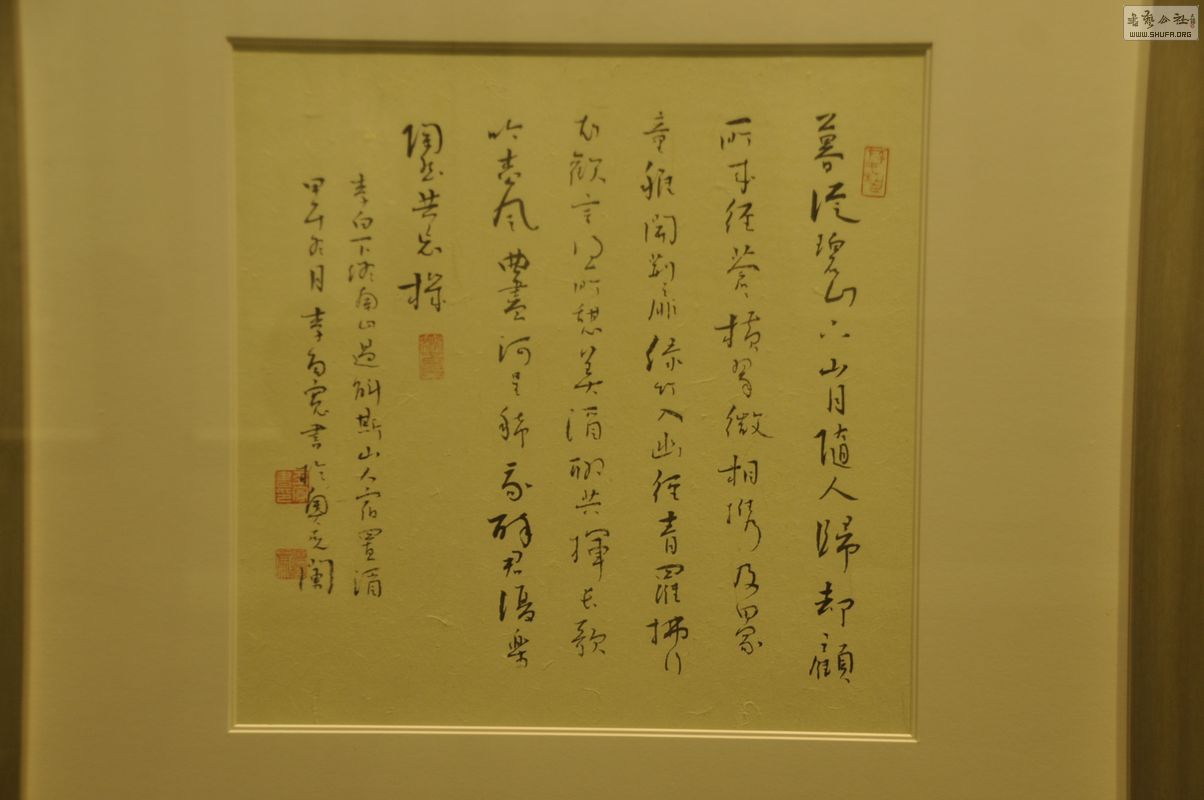 暮從碧山下山月隨人歸却顧
所来徑蒼蒼橫翠微相攜及田家
童稚開荊扉綠竹入幽徑青羅拂行
衣歡言得所憩美酒聊共揮長歌
吟松風曲盡河星稀我醉君復樂
陶然共忘機
李白下終南山過斛斯山人宿置酒
甲午冬月李寬書於
書藝公社
WWW.SHUFA.ORG